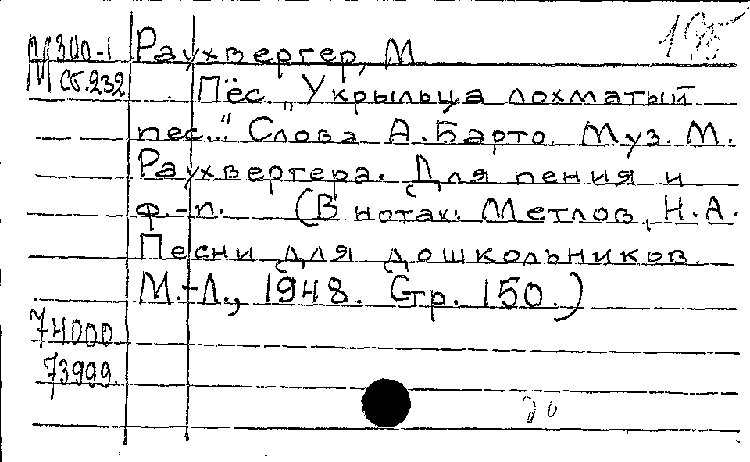 М 300-1 Раухвергер, М 195
М Сб.232 Пёс „Укрыльца лохматый
пес..." Слова А.Барто. Муз. М.
Раухвергера. Для пения и
ф.-п. (В нотах: Метлов, Н.А.
Песни для дошкольников.
М.-Л., 1948. Стр. 150.)
74000
73999
20